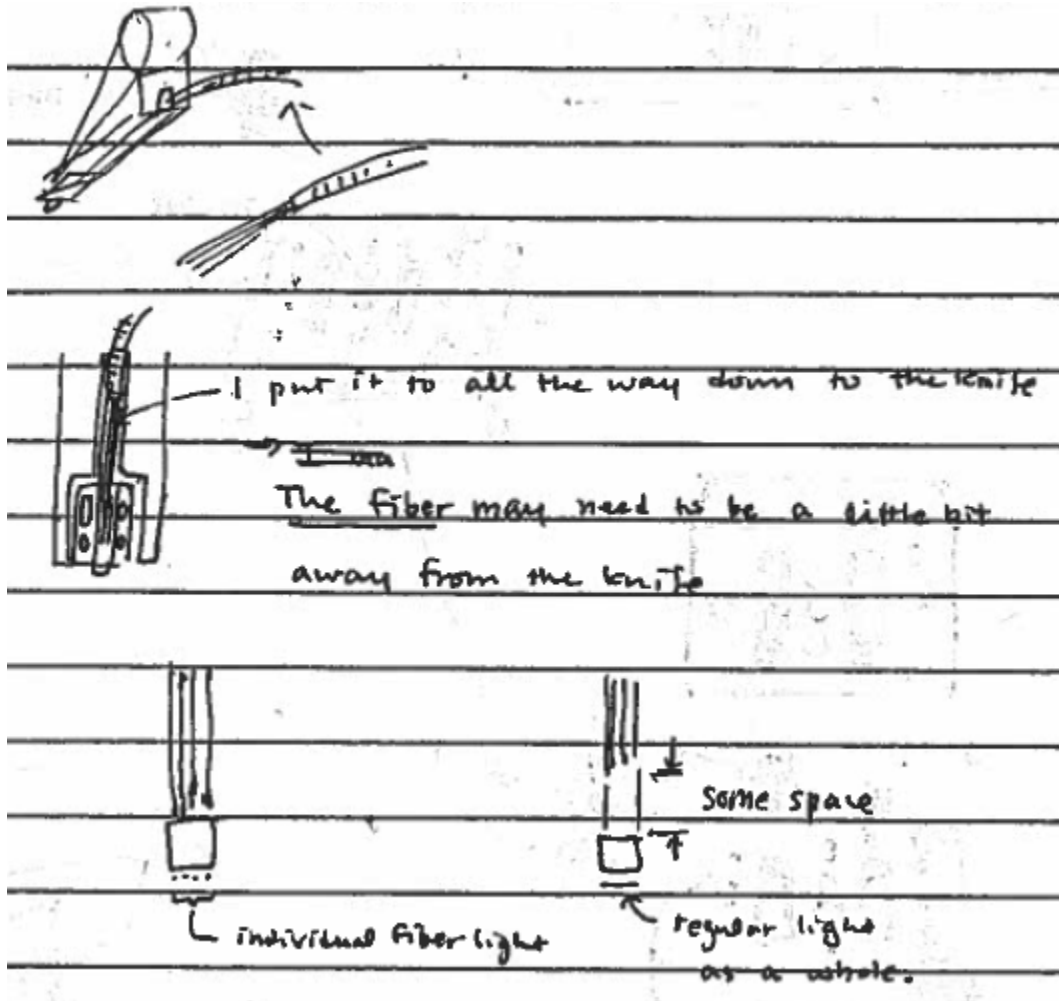 I put it to all the way down to the knife
The fiber may need to be a little bit
away from the knife
some space
individual fiber light
regular light
as a whole.